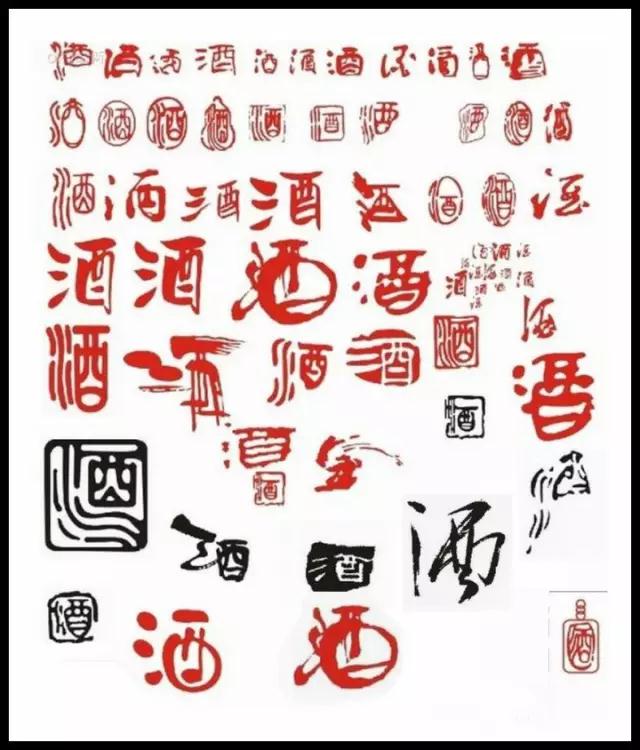 酒 酒 酒 酒 酒 酒 酒 酒 酒 酒 酒
酒 酒 酒 酒 酒 酒 酒 酒 酒 酒
酒 酒 酒 酒 酒 酒 酒 酒
酒 酒 酒 酒 酒
酒 酒 酒 酒 酒 酒 酒
酒
酒 酒
酒
酒 酒 酒 酒 酒
酒 酒 酒 酒